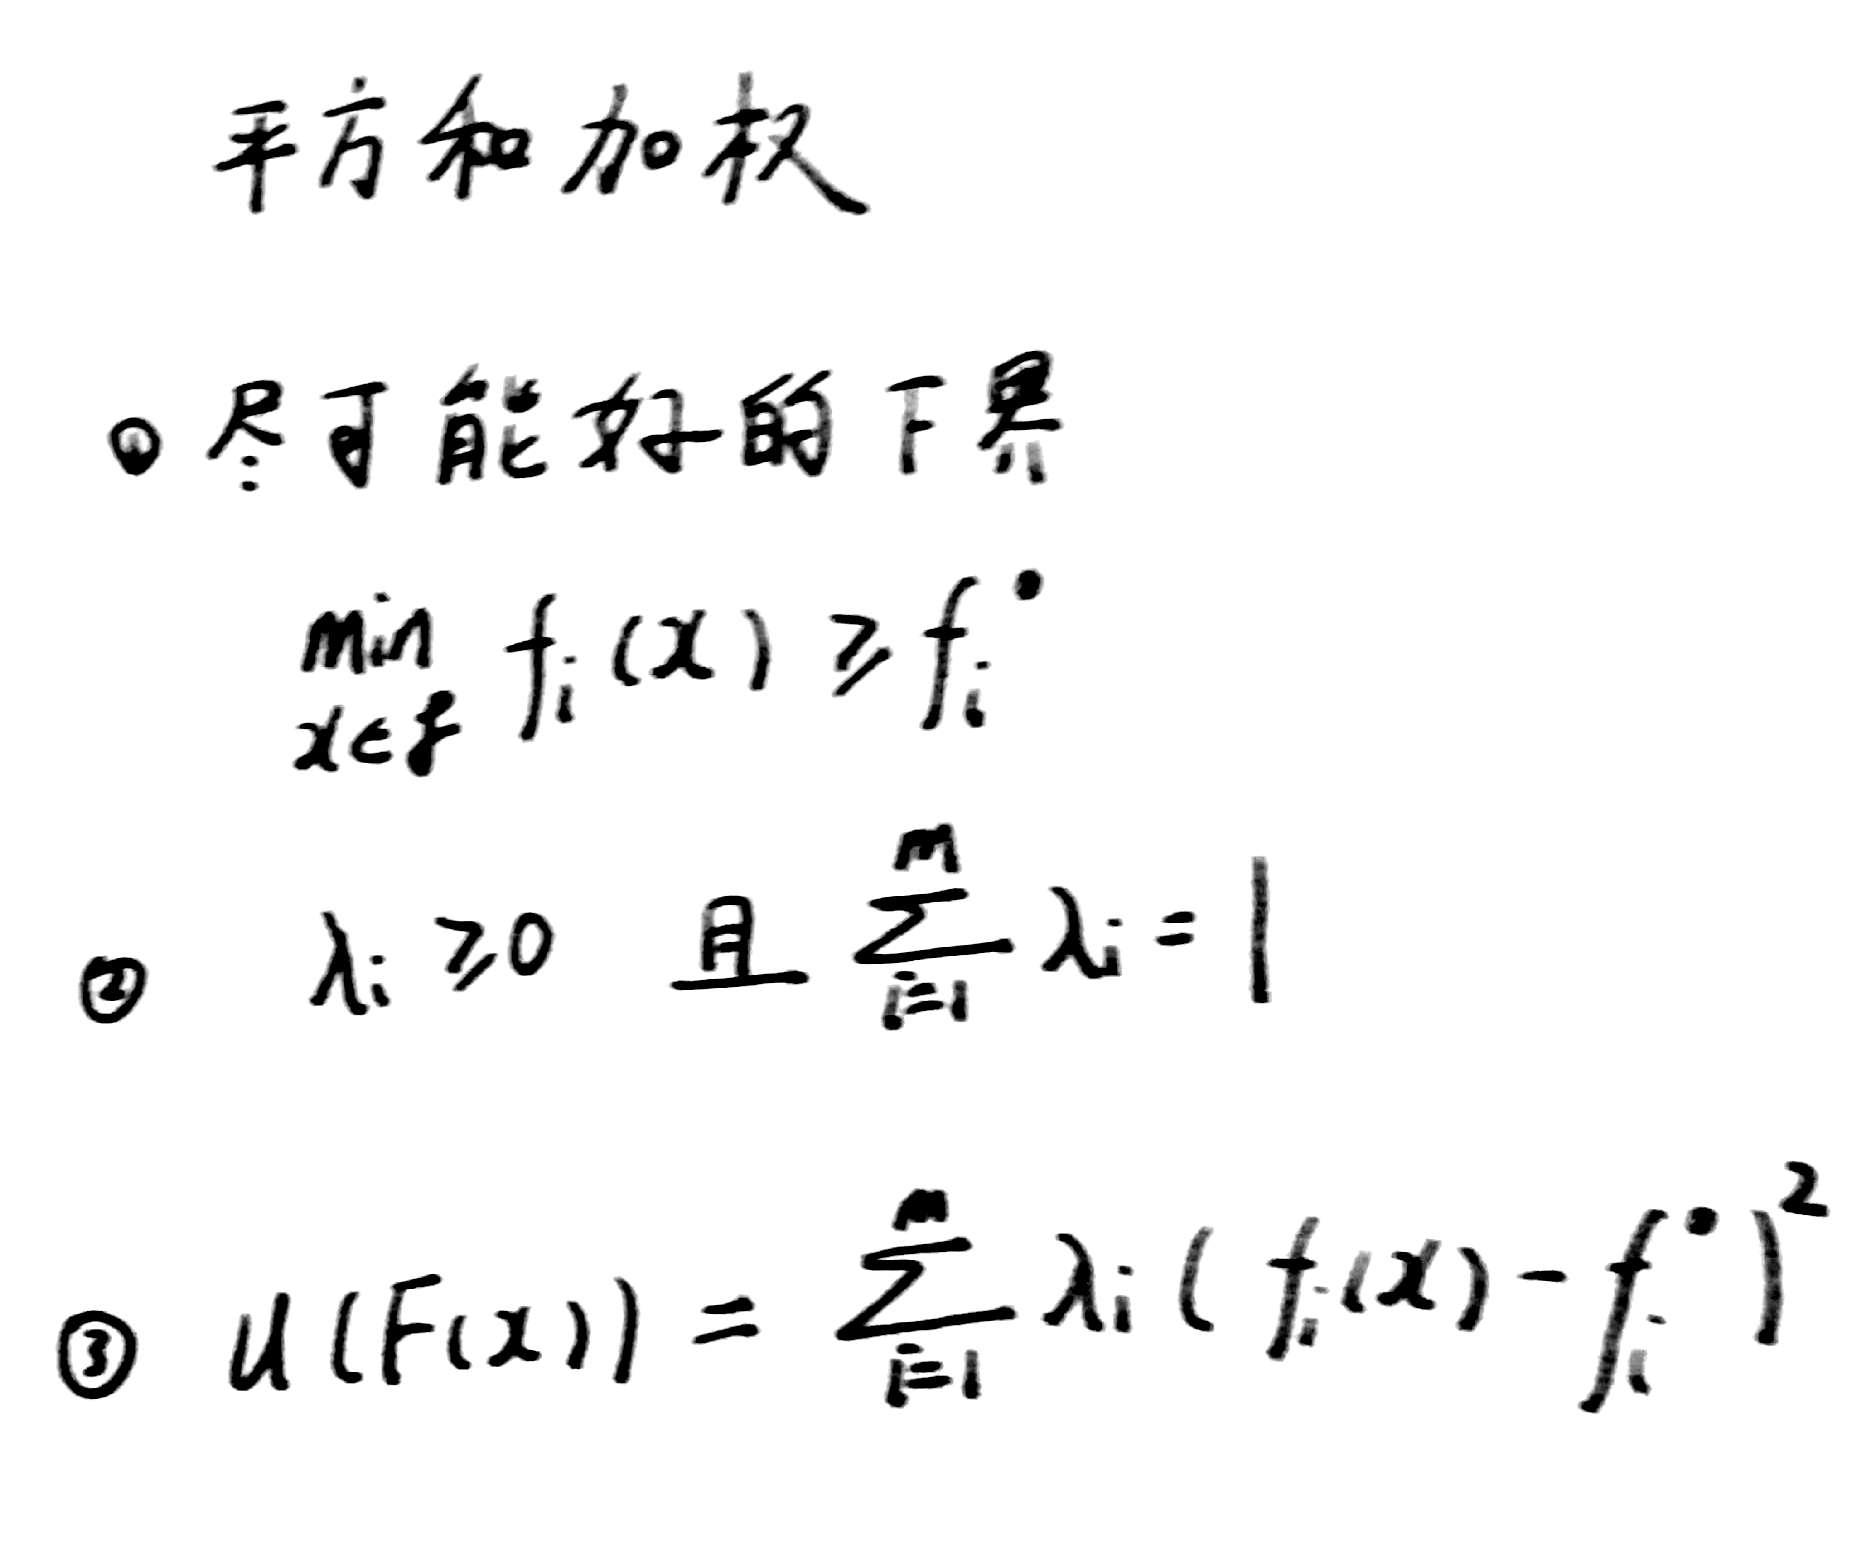 平方和加权
① 尽可能好的下界
min f_i(x) ≥ f_i^•
x∈f
② λ_i ≥ 0 且 ∑_{i=1}^{m} λ_i = 1
③ u(F(x)) = ∑_{i=1}^{m} λ_i (f_i(x) - f_i^•)^2